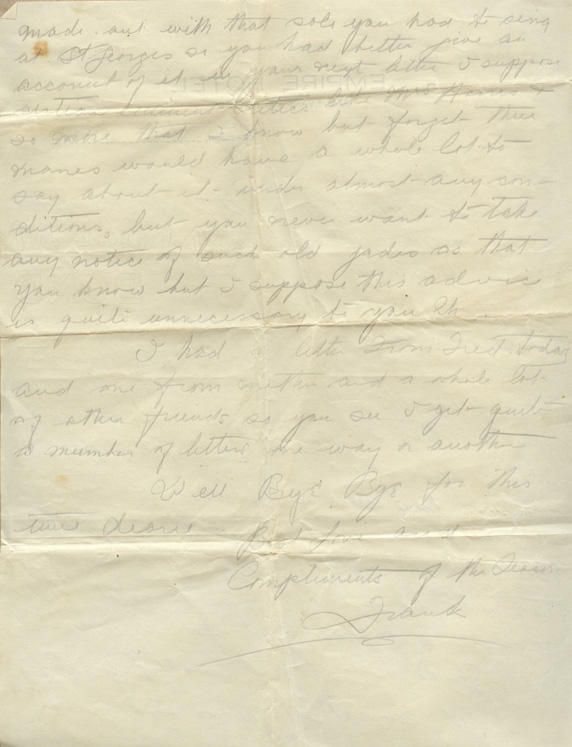 made out with that solo you had to sing
at St Georges so you had better give an
account of it in your next letter I suppose
like Mrs Harris &
so more that I know but forget their
names would have a whole lot to
say about it under almost any con-
ditions, but you never want to take
any notice of such old jades as that
you know but I suppose this advice
is quite unnecessary to you Eh.
I had a letter from Fred today
and one from mother and a whole lot
of other friends so you see I get quite
a number of letters one way or another
Well Bye Bye for this
time dearie
Best Love and
Compliments of the Season
Frank
EMPIRE HOTEL